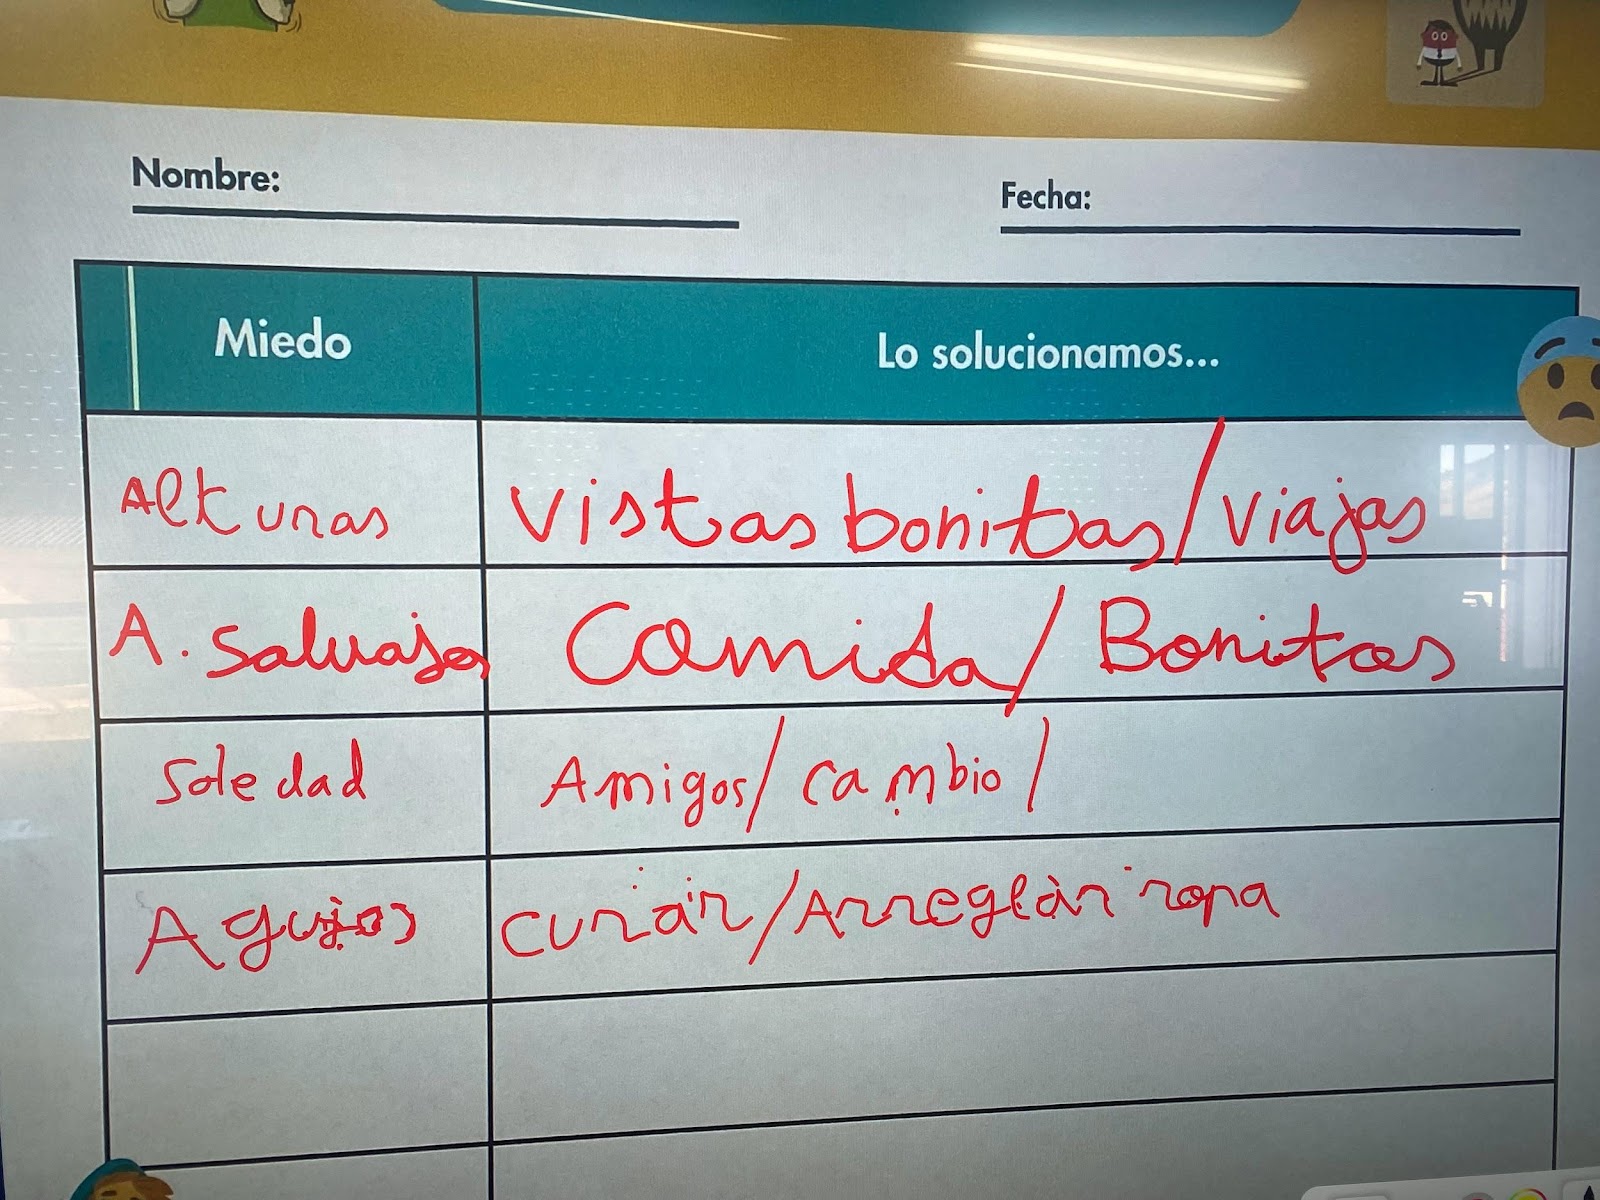 Nombre:
Fecha:
Miedo
Lo solucionamos...
Alturas
Vistas bonitas/viajas
A. Salvajes
Comida/Bonitos
Soledad
Amigos/cambio/
Agujas
curar/Arreglar ropa